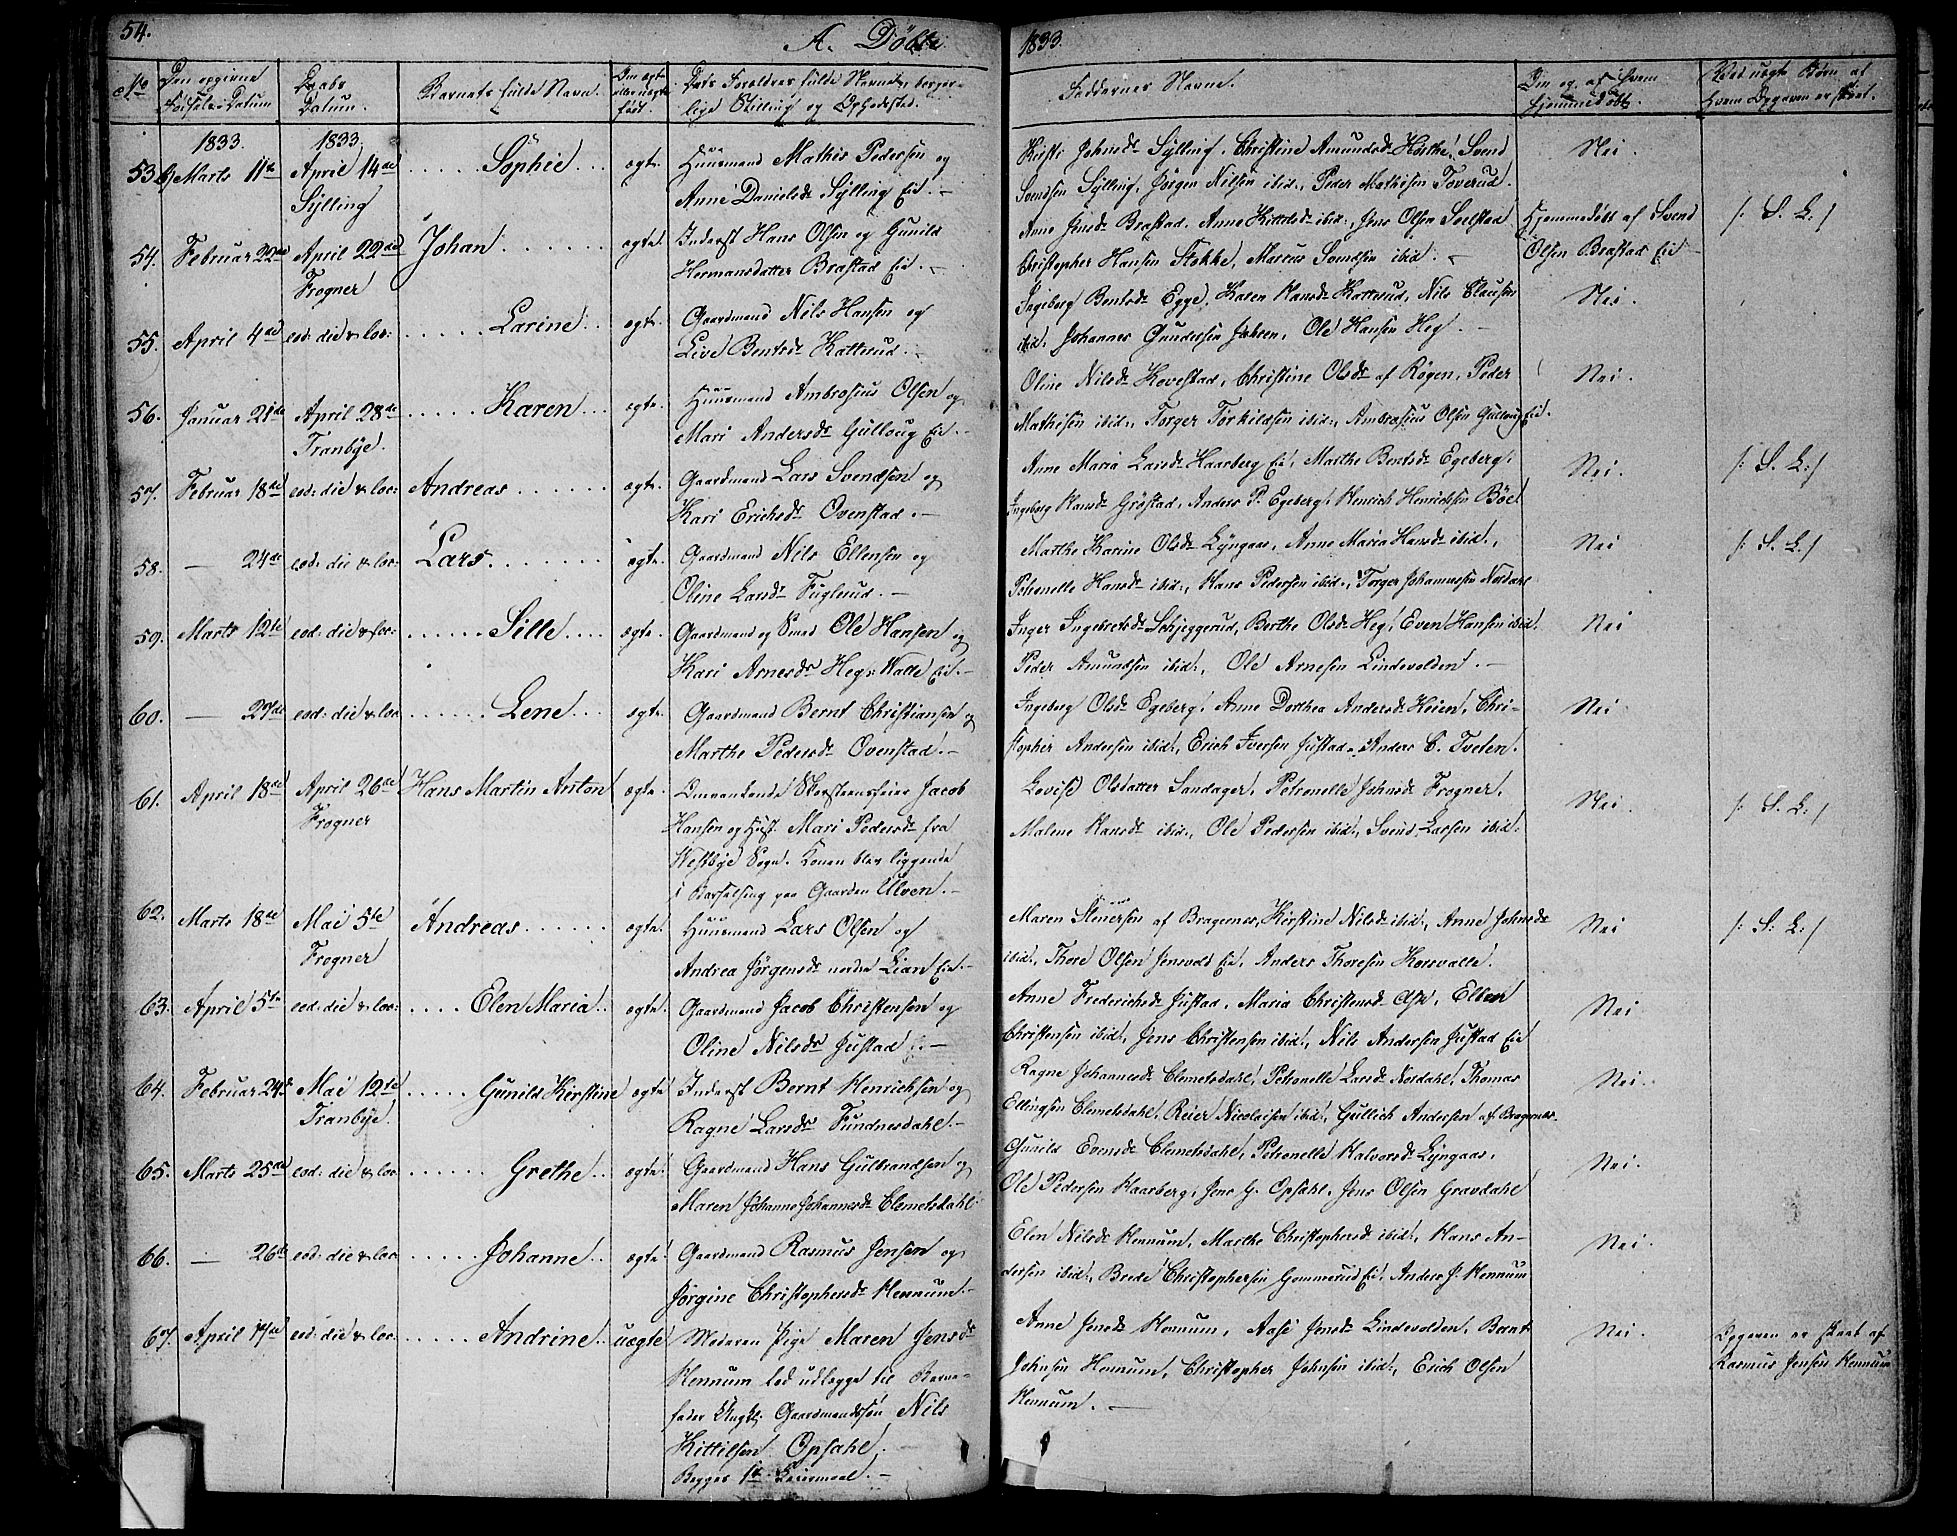 54.
A. Döbte
1833.
No
Den opgivne Fødsels-Datum
Daabs Datum.
Barnets fulde Navn.
Om ægte eller uægte født.
Dets Forældres fulde Navne, borgerlige Stilling og Opholdsted.
Faddernes Navne.
Om og af hvem hjemmedøbt.
Ved uægte Børn af hvem Opgaven er skeet.
1833. 1833.
53. Marts 11te April 14de Sylling
Sophie
ægte.
Huusmand Mathis Pedersen og
Anne Danielsdr Sylling Eie.
Kirsti Johnsdr Sylling, Christine Amundsdr Hörthe, Svend
Svendsen Sylling, Jörgen Nilsen ibid:, Peder Mathisen Toverud.
Nei.
54. Februar 22de April 22de Frogner
Johan
ægte.
Inderst Hans Olsen og Gunild
Hermansdatter Brastad Eie.
Anne Jensdr Brastad, Anne Kittelsdr ibid:, Jens Olsen Solstad
Christopher Hansen Stokke, Marcus Svendsen ibid.
Hjemmedöbt af Svend
Olsen Brastad Eie
/: S. L: /
55. April 4de eod: die & loc:
Larine
ægte.
Gaardmand Nils Hansen og
Live Bentsdr Katterud.
Ingeborg Bentsdr Egge, Karen Hansdr Katterud, Nils Clausen
ibid, Johannes Gundersen Jahren, Ole Hansen Heg.
Nei.
56. Januar 21de April 28de Tranbye.
Karen
ægte.
Huusmand Ambrosius Olsen og
Mari Andersdr Gulloug Eie.
Oline Nilsdr Kovestad, Christine Olsdr af Rögen, Peder
Mathisen ibid:, Torger Torkildsen ibid:, Ambrosius Olsen Gulloug Eie.
Nei.
57. Februar 18de eod: die & loc:
Andreas
ægte.
Gaardmand Lars Svendsen og
Kari Erichsdr Ovenstad.
Anne Maria Larsdr Haarberg Eie, Marthe Bentsdr Egeberg,
Ingeborg Hansdr Gröstad, Anders P. Egeberg, Henrich Henrichsen Böe
Nei.
/: S. L: /
58. — 24de eod: die & loc:
Lars
ægte.
Gaardmand Nils Ellensen og
Oline Larsdr Fuglerud.
Marthe Karine Olsdr Lyngaas, Anne Maria Hansdr ibid:,
Petronelle Hansdr ibid:, Hans Pedersen ibid:, Torger Johannesen Nordahl
Nei
/: S. L: /
59. Marts 12te eod: die & loc:
Sille
ægte.
Gaardmand og Smed Ole Hansen og
Kari Arnesdr Hegs Walle Eie.
Inger Ingebretsdr Schjeggerud, Berthe Olsdr Heg, Even Hansen ibid:
Peder Amundsen ibid:, Ole Arnesen Lindevolden.
Nei
60. — 27de eod: die & loc
Lene
ægte.
Gaardmand Bernt Christiansen og
Marthe Pedersdr Ovenstad.
Ingeborg Olsdr Egeberg, Anne Dorthea Andersdr Höien, Chri-
stopher Andersen ibid:, Erich Iversen Justad, Anders C. Tveten.
Nei
61. April 18de April 26de Frogner
Hans Martin Anton
ægte.
Omvankende Skorsteensfeier Jacob
Hansen og Hust. Mari Pedersdr fra
Westbye Sogn. Konen blev liggende
i Barselseng paa Gaarden Ulven.
Lovise Olsdatter Sandager, Petronelle Johnsdr Frogner,
Malene Hansdr ibid:, Ole Pedersen ibid:, Svend Larsen ibid:
Nei.
/: S. L: /
62. Marts 18de Mai 5te Frogner
Andreas
ægte.
Huusmand Lars Olsen og
Andrea Jörgensdr nordre Lian Eie.
Maren Stenersen af Bragernes, Kirstine Nilsdr ibid:, Anne Johnsdr
ibid:, Thore Olsen Jensvold Eie, Anders Thoresen Korsvalle.
Nei
/: S: L: /
63. April 5te eod: die & loc:
Elen Maria
ægte.
Gaardmand Jacob Christensen og
Oline Nilsdr Justad.
Anne Frederichsdr Justad, Maria Christensdr Asp, Ellen
Christensen ibid:, Jens Christensen ibid:, Nils Andersen Justad Eie
Nei.
64. Februar 24de Mai 12te Tranbye.
Gunild Kirstine
ægte
Inderst Bernt Henrichsen og
Ragne Larsdr Fundnesdahl.
Ragne Johannesdr Clemetsdahl, Petronelle Larsdr Nordahl, Thomas
Ellingsen Clemetsdahl, Reier Nicolaisen ibid:, Gullich Andersen af Bragernes.
Nei.
65. Marts 25de eod: die & loc
Grethe
ægte.
Gaardmand Hans Gulbrandsen og
Maren Johanne Johannesdr Clemetsdahl
Gunild Evensdr Clemetsdahl, Petronelle Halvorsdr Lyngaas,
Ole Pedersen Haarberg, Jens G. Opsahl, Jens Olsen Gravdahl
Nei.
66. — 26de eod: die & loc
Johanne
ægte.
Gaardmand Rasmus Jensen og
Jörgine Christophersdr Hennum.
Elen Nilsdr Hennum, Marthe Christophersdr ibid:, Hans An-
dersen ibid:, Brede Christophersen Gommerud Eie, Anders J. Hennum
Nei.
67. April 17de eod: die & loc:
Andrine
uægte
Moderen Pige Maren Jensdr
Hennum lod udlægge til Barne-
fader Ungk: Gaardmandssön Nils
Kittilsen Opsahl.
Begges 1te Leiermaal.
Anne Jensdr Hennum, Aase Jensdr Lindevolden, Bent
Johnsen Hennum, Christopher Johnsen ibid:, Erich Olsen
Hennum.
Nei.
Opgaven er skeet af
Rasmus Jensen Hennum